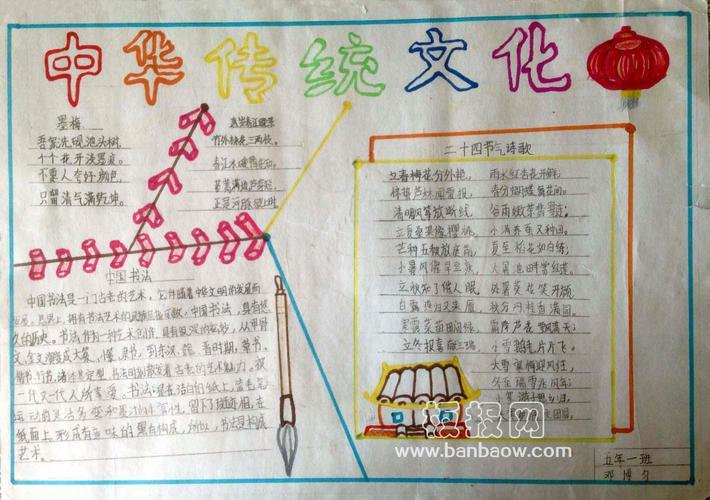 中华传统文化
墨梅
吾家洗砚池头树,
个个花开淡墨痕。
不要人夸好颜色,
只留清气满乾坤。
竹外桃花三两枝,
春江水暖鸭先知。
蒌蒿满地芦芽短,
正是河豚欲上时
中国书法
中国书法是一门古老的艺术,它伴随着中华文明的发展而
发展。世界上,拥有书法艺术的民族屈指可数,中国书法,具有悠
久的历史。书法作为一种艺术创作,具有很深的玄妙,从甲骨
文、金文演变成大篆、小篆、隶书,到东汉、魏、晋时期,草书、
楷书、行书,诸体基定型,书法时刻散发着古老的艺术魅力。被
一代又一代人所喜爱。书法,是在洁白的纸上,靠毛笔
运动的灵活多变和墨汁的丰富性,留下斑迹,在
纸面上形成有意味的黑白构成,所以,书法是构成
艺术。
二十四节气诗歌
立春梅花分外艳, 雨水红杏花开鲜;
惊蛰芦林闻雷报, 春分蝴蝶舞花间。
清明风筝放断线, 谷雨嫩茶翡翠连;
立夏桑果像樱桃, 小满养蚕又种田。
芒种 放庭前, 夏至稻花如白练;
小暑风催早豆熟, 大暑池畔赏红莲。
立秋知了催人眠, 处暑葵花笑开颜;
白露燕归又来雁, 秋分丹桂香满园。
寒露菜苗田间绿, 霜降芦花飘满天;
立冬报喜献三瑞, 小雪鹅毛片片飞。
大雪寒梅迎风狂,
冬至瑞雪兆丰年;
小寒游子思乡归,
大寒岁底庆团圆
五年一班
邓博
短报网
www.banbaow.com